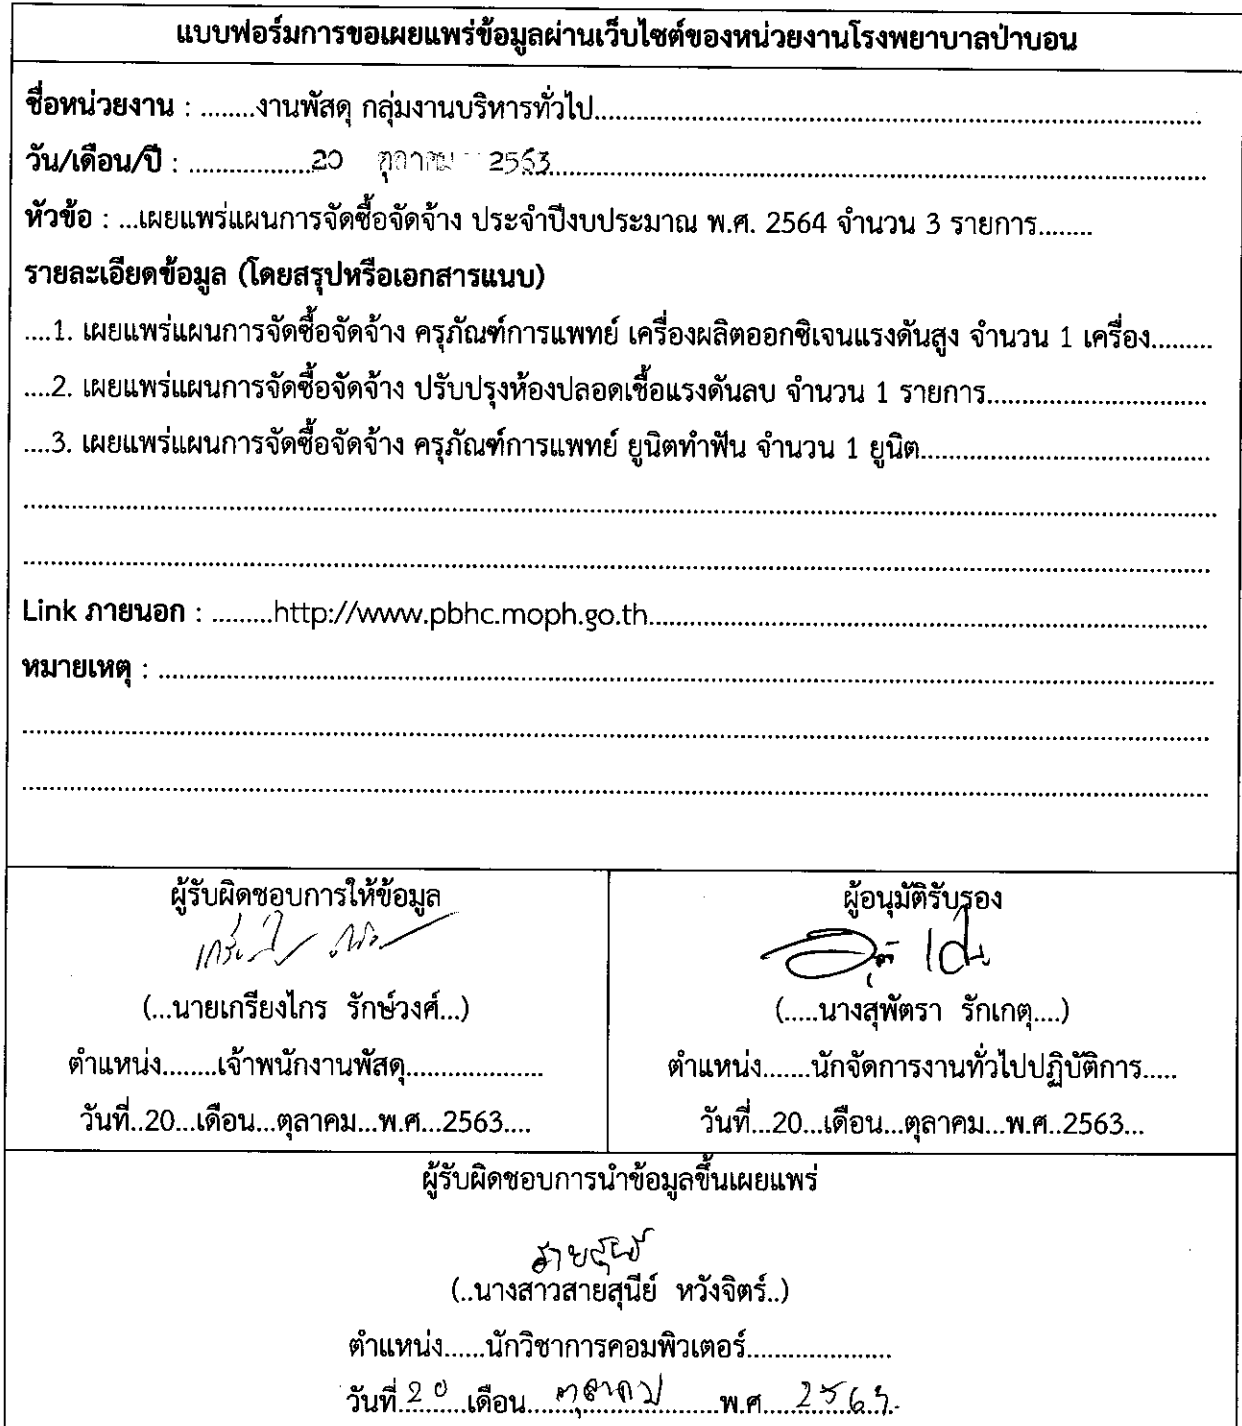 แบบฟอร์มการขอเผยแพร่ข้อมูลผ่านเว็บไซต์ของหน่วยงานโรงพยาบาลป่าบอน
ชื่อหน่วยงาน : ........งานพัสดุ กลุ่มงานบริหารทั่วไป........
วัน/เดือน/ปี : ........20 ตุลาคม 2563........
หัวข้อ : ...เผยแพร่แผนการจัดซื้อจัดจ้าง ประจำปีงบประมาณ พ.ศ. 2564 จำนวน 3 รายการ........
รายละเอียดข้อมูล (โดยสรุปหรือเอกสารแนบ)
....1. เผยแพร่แผนการจัดซื้อจัดจ้าง ครุภัณฑ์การแพทย์ เครื่องผลิตออกซิเจนแรงดันสูง จำนวน 1 เครื่อง.........
....2. เผยแพร่แผนการจัดซื้อจัดจ้าง ปรับปรุงห้องปลอดเชื้อแรงดันลบ จำนวน 1 รายการ........
....3. เผยแพร่แผนการจัดซื้อจัดจ้าง ครุภัณฑ์การแพทย์ ยูนิตทำฟัน จำนวน 1 ยูนิต........
Link ภายนอก : .........http://www.pbhc.moph.go.th........
หมายเหตุ : ........
ผู้รับผิดชอบการให้ข้อมูล
(...นายเกรียงไกร รักษ์วงศ์...)
ตำแหน่ง........เจ้าพนักงานพัสดุ....................
วันที่..20...เดือน...ตุลาคม...พ.ศ...2563....
ผู้อนุมัติรับรอง
(.....นางสุพัตรา รักเกตุ....)
ตำแหน่ง.......นักจัดการงานทั่วไปปฏิบัติการ.....
วันที่...20...เดือน...ตุลาคม...พ.ศ..2563...
ผู้รับผิดชอบการนำข้อมูลขึ้นเผยแพร่
สายสุนีย์
(..นางสาวสายสุนีย์ หวังจิตร์..)
ตำแหน่ง......นักวิชาการคอมพิวเตอร์.....................
วันที่ 20 เดือน ตุลาคม พ.ศ. 2563